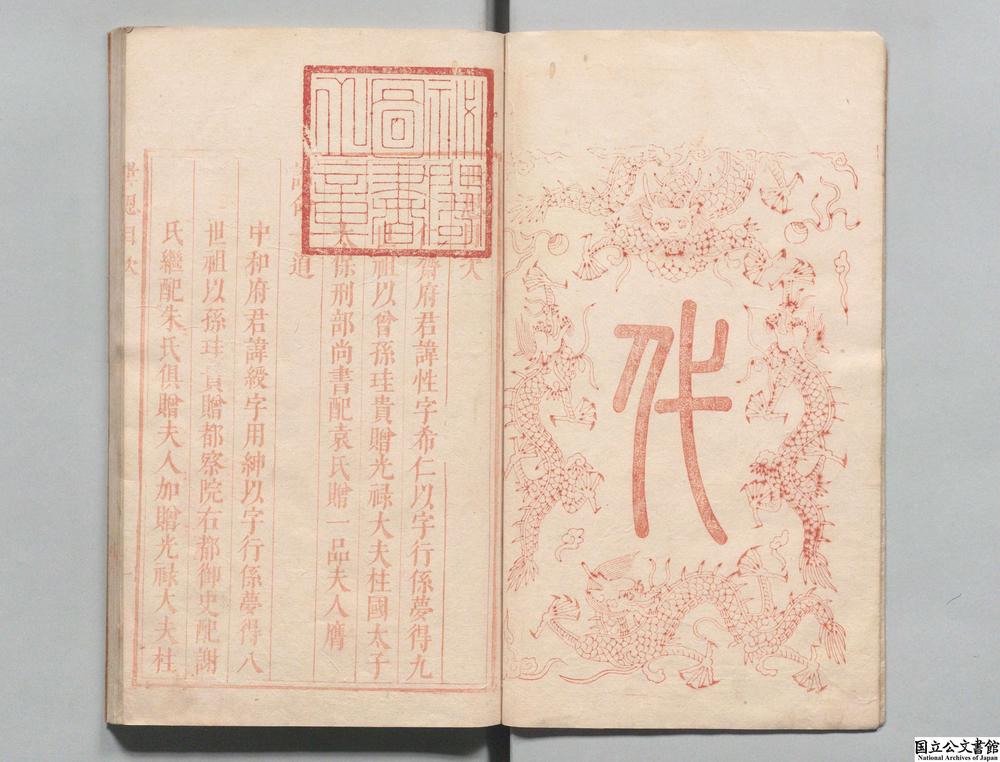 代
秘閣
圖書
之章
次
齋府君諱性字希仁以字行係夢得九
世祖以曾孫珪貴贈光祿大夫柱國太子
太保刑部尚書配袁氏贈一品夫人膺
誥命 道
中和府君諱綬字用紳以字行係夢得八
世祖以孫珪貴贈都察院右都御史配謝
氏繼配朱氏俱贈夫人加贈光祿大夫柱
恩目次
国立公文書館
National Archives of Japan